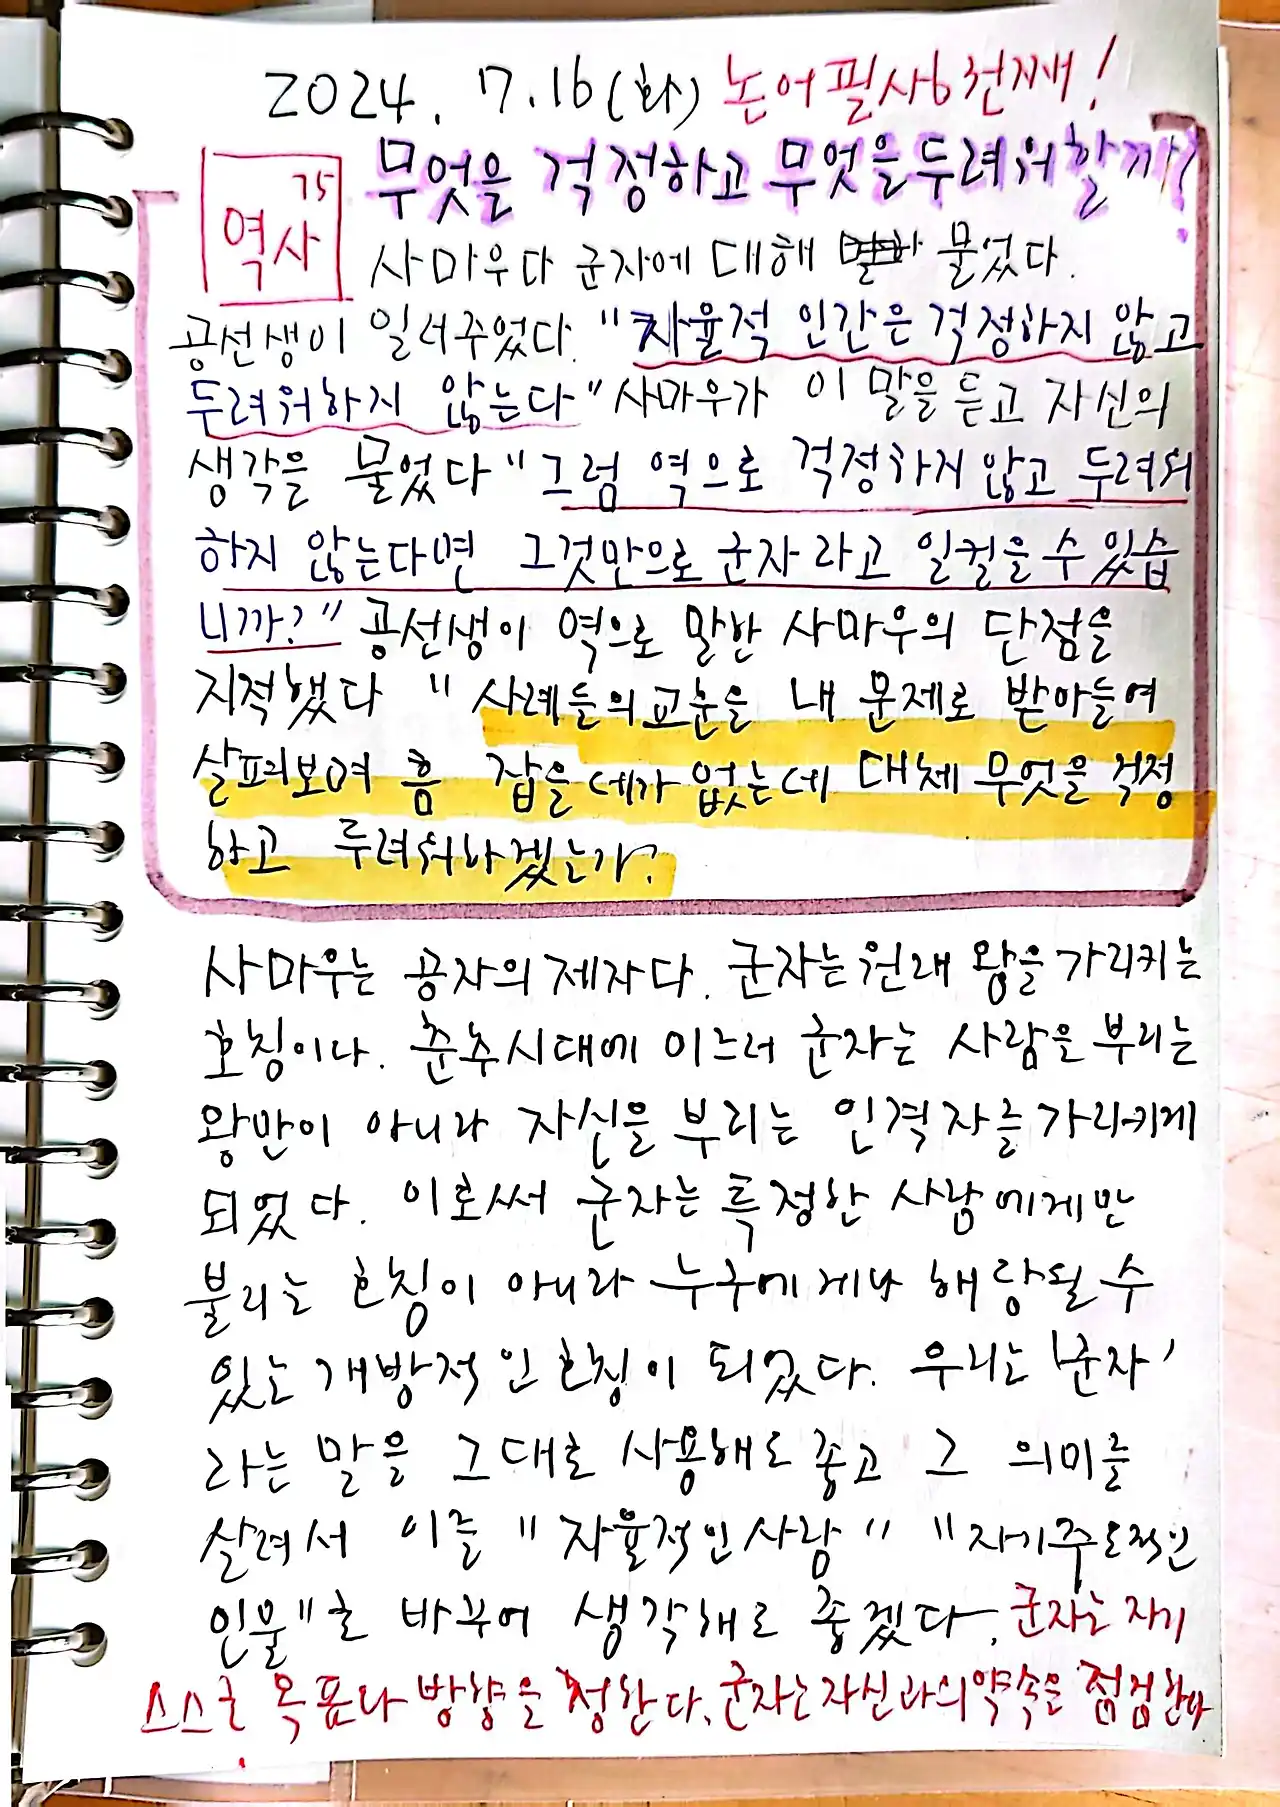 2024. 7.16(화) 논어필사6천째!
75
역사
무엇을 걱정하고 무엇을 두려워할까?
사마우다 군자에 대해 물었다.
공선생이 일러주었다. "자율적 인간은 걱정하지 않고
두려워하지 않는다" 사마우가 이 말을 듣고 자신의
생각을 물었다 "그럼 역으로 걱정하지 않고 두려워
하지 않는다면 그것만으로 군자라고 일컬을 수 있습
니까?" 공선생이 역으로 말한 사마우의 단점을
지적했다 "사례들의 교훈을 내 문제로 받아들여
살펴보며 흠 잡을 데가 없는데 대체 무엇을 걱정
하고 두려워하겠는가?
사마우는 공자의 제자다. 군자는 원래 왕을 가리키는
호칭이나. 춘추시대에 이르러 군자는 사람을 부리는
왕만이 아니라 자신을 부리는 인격자를 가리키게
되었다. 이로써 군자는 특정한 사람에게만
불리는 호칭이 아니라 누구에게나 해당될 수
있는 개방적인 호칭이 되었다. 우리는 '군자'
라는 말을 그대로 사용해도 좋고 그 의미를
살려서 이를 "자율적인 사람" "자기주도적인
인물"로 바꾸어 생각해도 좋겠다. 군자는 자기
스스로 목표나 방향을 정한다. 군자는 자신과의 약속을 점검한다